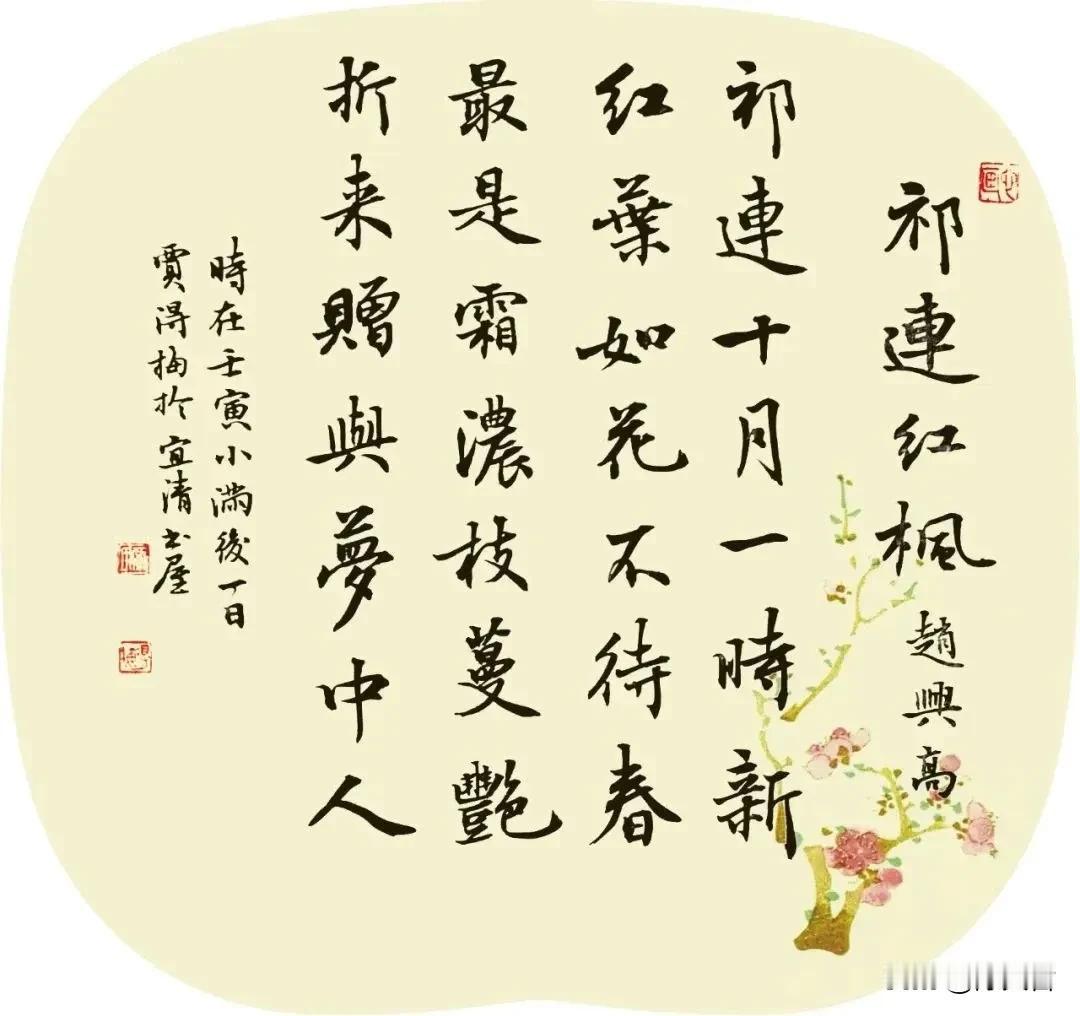 祁連红楓
趙興高
祁連十月一時新
红葉如花不待春
最是霜濃枝蔓艷
折来贈與夢中人
時在壬寅小满後一日
賈得梅於宜清书屋